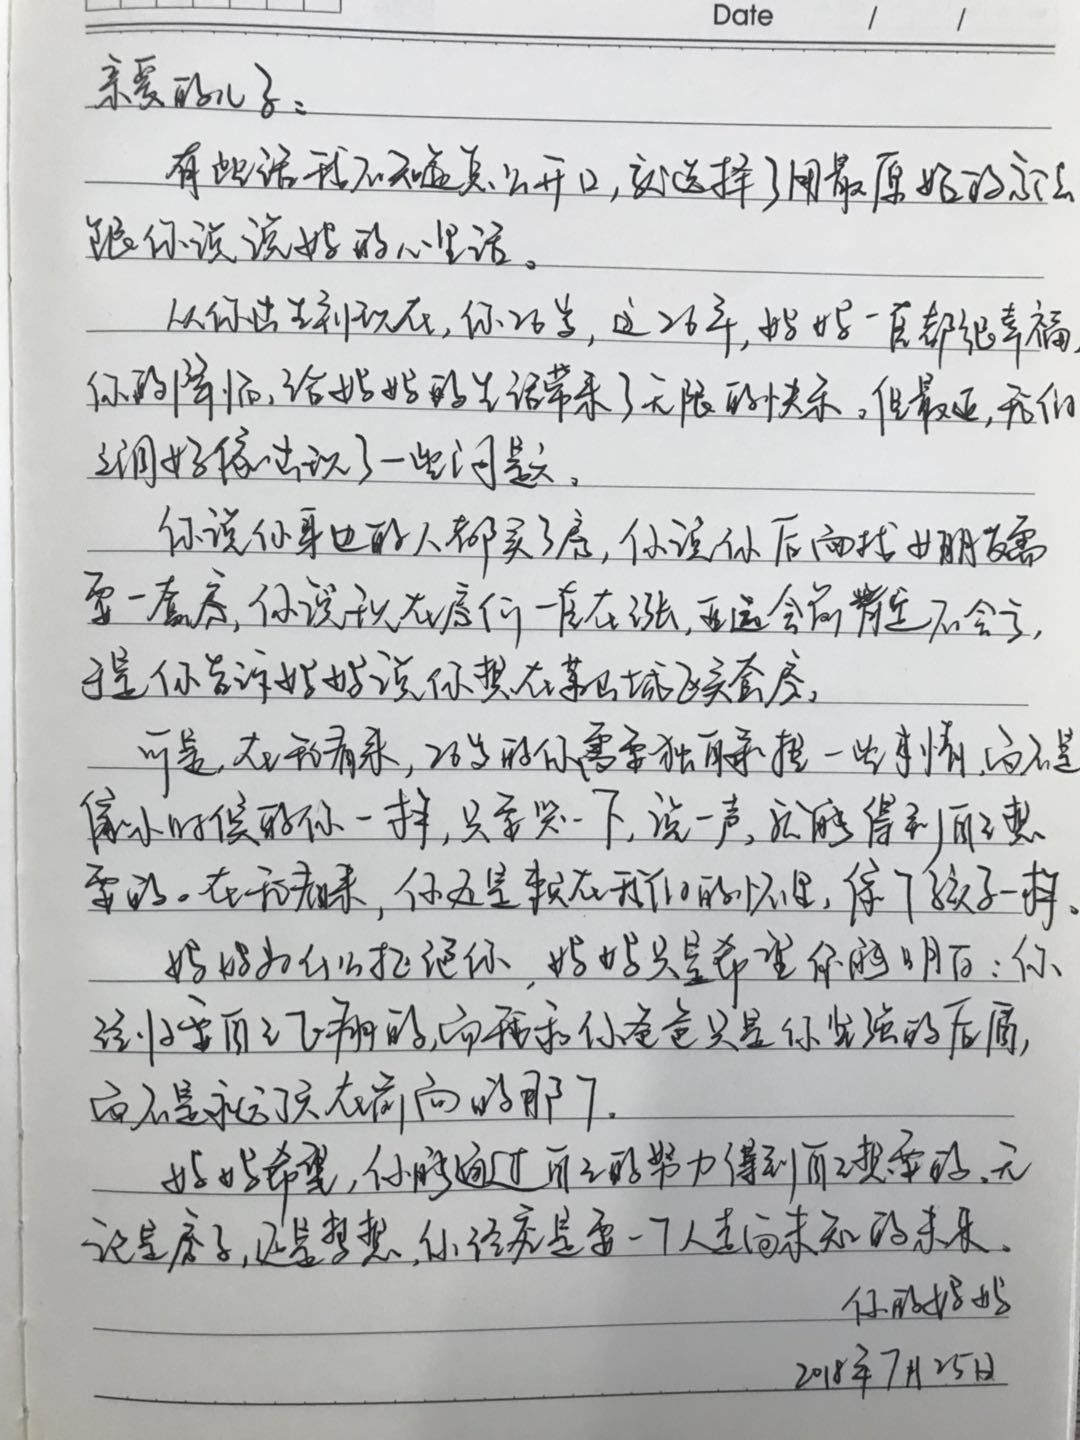 Date / /
亲爱的儿子：
有些话我不知道怎么开口，就选择了用最原始的方法
跟你说说妈的心里话。
从你出生到现在，你26岁，这26年，妈妈一直都很幸福，
你的降临，给妈妈的生活带来了无限的快乐。但最近，我们
之间好像出现了一些问题。
你说你身边的人都买了房，你说你后面找女朋友需
要一套房，你说现在房价一直在涨，亚运会前肯定不会亏，
于是你告诉妈妈说你想在萧山城区买套房。
可是，在我看来，26岁的你需要独自承担一些事情，而不是
像小时候的你一样，只要哭一下，说一声，就能得到自己想
要的。在我看来，你还是赖在我们的怀里，像个孩子一样。
妈妈为什么拒绝你，妈妈只是希望你能明白：你
终归要自己飞翔的，而我和你爸爸只是你坚强的后盾，
而不是永远顶在前面的那个。
妈妈希望，你能通过自己的努力得到自己想要的，无
论是房子，还是梦想，你终究是要一个人走向未知的未来。
你的妈妈
2018年7月25日